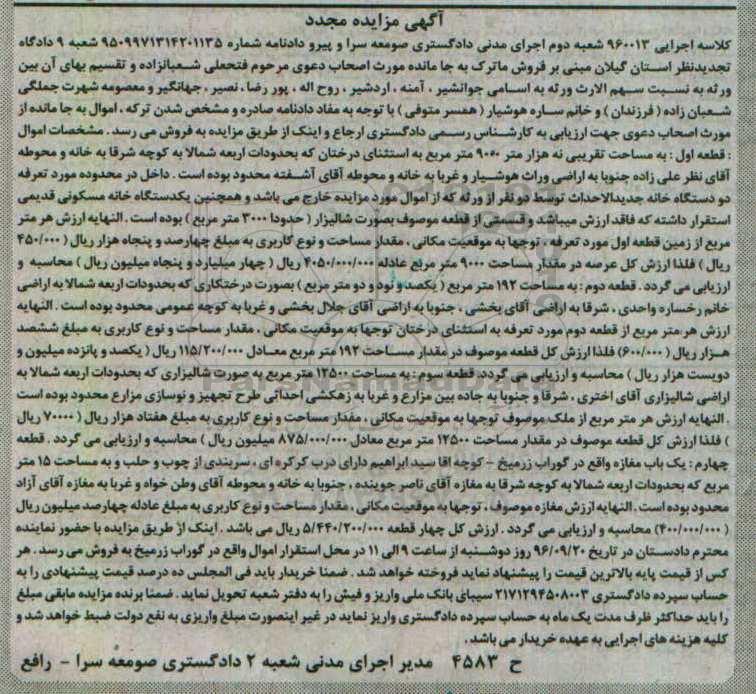 آگهی مزایده مجدد
کلاسه اجرایی ۹۶۰۰۱۳ شعبه دوم اجرای مدنی دادگستری صومعه سرا و پیرو دادنامه شماره ۹۵۰۹۹۷۱۳۱۴۲۰۱۱۳۵ شعبه ۹ دادگاه
تجدیدنظر استان گیلان مبنی بر فروش ماترک به جا مانده مورث اصحاب دعوی مرحوم فتحعلی شعبانزاده و تقسیم بهای آن بین
ورثه به نسبت سهم الارث ورثه به اسامی جوانشیر ، آمنه ، اردشیر ، روح اله ، پور رضا ، نصیر ، جهانگیر و معصومه شهرت جملگی
شعبان زاده ( فرزندان ) و خانم ساره هوشیار ( همسر متوفی ) با توجه به مفاد دادنامه صادره و مشخص شدن ترکه ، اموال به جا مانده از
مورث اصحاب دعوی جهت ارزیابی به کارشناس رسمی دادگستری ارجاع و اینک از طریق مزایده به فروش می رسد . مشخصات اموال
: قطعه اول : به مساحت تقریبی نه هزار متر ۹۰۰۰ متر مربع به استثنای درختان که بحدودات اربعه شمالا به کوچه شرقا به خانه و محوطه
آقای نظر علی زاده جنوبا به اراضی وراث هوشیار و غربا به خانه و محوطه آقای آشفته محدود بوده است . داخل در محدوده مورد تعرفه
دو دستگاه خانه جدیدالاحداث توسط دو نفر از ورثه که از اموال مورد مزایده خارج می باشد و همچنین یکدستگاه خانه مسکونی قدیمی
استقرار داشته که فاقد ارزش میباشد و قسمتی از قطعه موصوف بصورت شالیزار ( حدودا ۳۰۰۰ متر مربع ) بوده است . النهایه ارزش هر متر
مربع از زمین قطعه اول مورد تعرفه ، توجها به موقعیت مکانی ، مقدار مساحت و نوع کاربری به مبلغ چهارصد و پنجاه هزار ریال ( ۴۵۰/۰۰۰
ریال ) فلذا ارزش کل عرصه در مقدار مساحت ۹۰۰۰ متر مربع عادله ۴۰۵۰/۰۰۰/۰۰۰ ریال ( چهار میلیارد و پنجاه میلیون ریال ) محاسبه و
ارزیابی می گردد . قطعه دوم : به مساحت ۱۹۲ متر مربع ( یکصد و نود و دو متر مربع ) بصورت درختکاری که بحدودات اربعه شمالا به اراضی
خانم رخساره واحدی ، شرقا به اراضی آقای بخشی ، جنوبا به اراضی آقای جلال بخشی و غربا به کوچه عمومی محدود بوده است . النهایه
ارزش هر متر مربع از قطعه دوم مورد تعرفه به استثنای درختان توجها به موقعیت مکانی ، مقدار مساحت و نوع کاربری به مبلغ ششصد
هزار ریال ( ۶۰۰/۰۰۰ ) فلذا ارزش کل قطعه موصوف در مقدار مساحت ۱۹۲ متر مربع معادل ۱۱۵/۲۰۰/۰۰۰ ریال ( یکصد و پانزده میلیون و
دویست هزار ریال ) محاسبه و ارزیابی می گردد. قطعه سوم : به مساحت ۱۲۵۰۰ متر مربع به صورت شالیزاری که بحدودات اربعه شمالا به
اراضی شالیزاری آقای اختری ، شرقا و جنوبا به جاده بین مزارع و غربا به زهکشی احداثی طرح تجهیز و نوسازی مزارع محدود بوده است
. النهایه ارزش هر متر مربع از ملک موصوف توجها به موقعیت مکانی ، مقدار مساحت و نوع کاربری به مبلغ هفتاد هزار ریال ( ۷۰۰۰۰ ریال
) فلذا ارزش کل قطعه موصوف در مقدار مساحت ۱۲۵۰۰ متر مربع معادل ۸۷۵/۰۰۰/۰۰۰ میلیون ریال ) محاسبه و ارزیابی می گردد . قطعه
چهارم : یک باب مغازه واقع در گوراب زرمیخ - کوچه آقا سید ابراهیم دارای درب کرکره ای ، سربندی از چوب و حلب و به مساحت ۱۵ متر
مربع که بحدودات اربعه شمالا به کوچه شرقا به مغازه آقای ناصر جوینده ، جنوبا به خانه و محوطه آقای وطن خواه و غربا به مغازه آقای آزاد
محدود بوده است . النهایه ارزش مغازه موصوف ، توجها به موقعیت مکانی ، مقدار مساحت و نوع کاربری به مبلغ عادله چهارصد میلیون ریال
( ۴۰۰/۰۰۰/۰۰۰) محاسبه و ارزیابی می گردد . ارزش کل چهار قطعه ۵/۴۴۰/۲۰۰/۰۰۰ ریال می باشد . اینک از طریق مزایده با حضور نماینده
محترم دادستان در تاریخ ۹۶/۰۹/۲۰ روز دوشنبه از ساعت ۹ الی ۱۱ در محل استقرار اموال واقع در گوراب زرمیخ به فروش می رسد . هر
کس از قیمت پایه بالاترین قیمت را پیشنهاد نماید فروخته خواهد شد . ضمنا خریدار باید فی المجلس ده درصد قیمت پیشنهادی را به
حساب سپرده دادگستری ۲۱۷۱۲۹۴۵۰۸۰۰۳ سیبای بانک ملی واریز و فیش را به دفتر شعبه تحویل نماید . ضمنا برنده مزایده مابقی مبلغ
را باید حداکثر ظرف مدت یک ماه به حساب سپرده دادگستری واریز نماید در غیر اینصورت مبلغ واریزی به نفع دولت ضبط خواهد شد و
کلیه هزینه های اجرایی به عهده خریدار می باشد .
ح ۴۵۸۳ مدیر اجرای مدنی شعبه ۲ دادگستری صومعه سرا - رافع